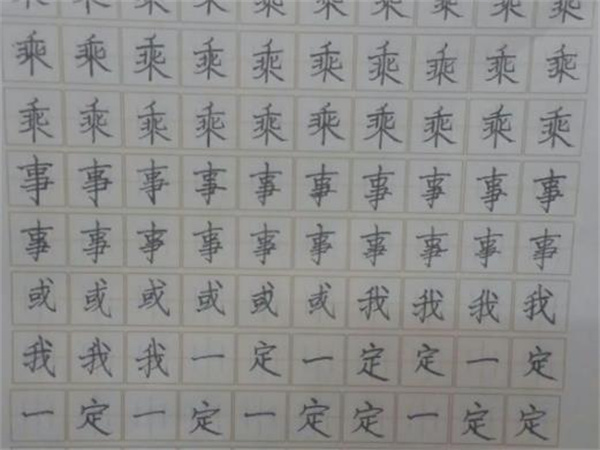 乘乘乘乘乘乘乘乘乘乘
乘乘乘乘乘乘乘乘乘乘
事事事事事事事事事事
事事事事事事事事事事
或或或或或或我我我我
我我我一定一定定一定
一定一定一定定一定定